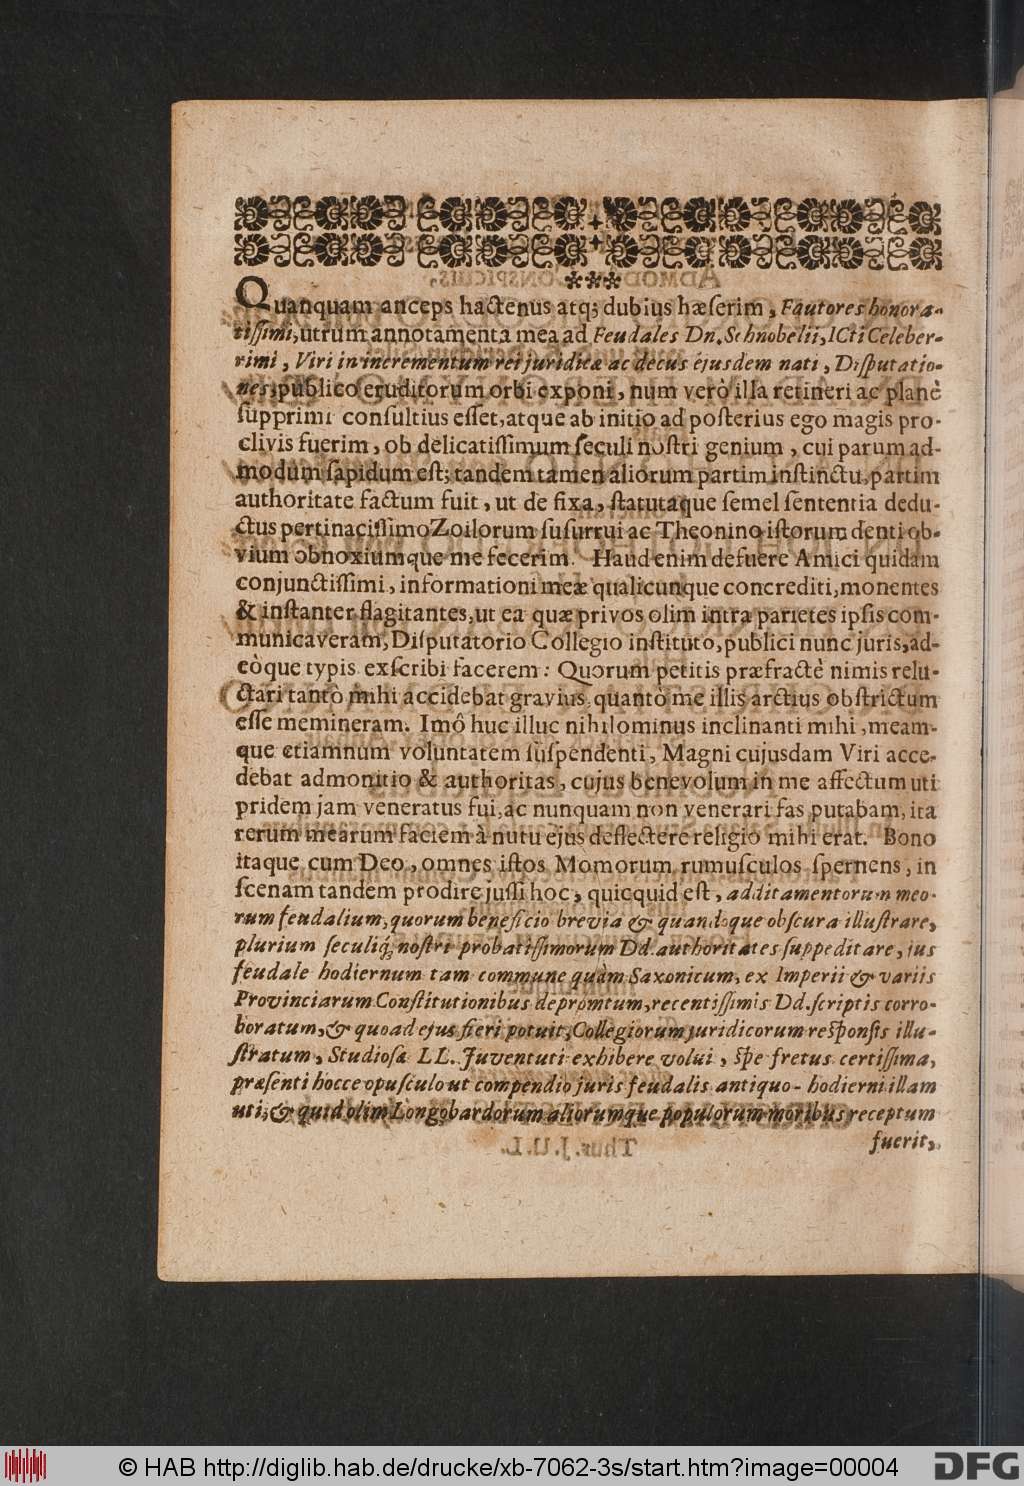 ***
Quanquam anceps hactenus atq; dubius hæserim, Fautores honora-
tissimi, utrum annotamenta mea ad Feudales Dn. Schnobelii, ICti Celeber-
rimi, Viri in incrementum rei juridicæ ac decus ejusdem nati, Disputatio-
nes, publico eruditorum orbi exponi, num verò illa retineri ac planè
supprimi consultius esset, atque ab initio ad posterius ego magis pro-
clivis fuerim, ob delicatissimum seculi nostri genium, cui parum ad-
modum sapidum est; tandem tamen aliorum partim instinctu, partim
authoritate factum fuit, ut de fixa, statutaque semel sententia dedu-
ctus pertinacissimo Zoilorum susurrui ac Theonino istorum denti ob-
vium obnoxiumque me fecerim. Haud enim defuere Amici quidam
conjunctissimi, informationi meæ qualicunque concrediti, monentes
& instanter flagitantes, ut ea quæ privos olim intra parietes ipsis com-
municaveram, Disputatorio Collegio instituto, publici nunc juris, ad-
eòque typis exscribi facerem: Quorum petitis præfractè nimis relu-
ctari tantò mihi accidebat gravius, quantò me illis arctius obstrictum
esse memineram. Imô huc illuc nihilominus inclinanti mihi, meam-
que etiamnum voluntatem suspendenti, Magni cujusdam Viri acce-
debat admonitio & authoritas, cujus benevolum in me affectum uti
pridem jam veneratus fui, ac nunquam non venerari fas putabam, ita
rerum mearum faciem à nutu ejus deflectere religio mihi erat. Bono
itaque cum Deo, omnes istos Momorum rumusculos spernens, in
scenam tandem prodire jussi hoc, quicquid est, additamentorum meo-
rum feudalium, quorum beneficio brevia & quandoque obscura illustrare,
plurium seculiq; nostri probatissimorum Dd. authoritates suppeditare, jus
feudale hodiernum tam commune quàm Saxonicum, ex Imperii & variis
Provinciarum Constitutionibus depromtum, recentissimis Dd. scriptis corro-
boratum, & quoad ejus fieri potuit, Collegiorum juridicorum responsis illu-
stratum, Studiosæ LL. Juventuti exhibere volui, spe fretus certissima,
præsenti hocce opusculo ut compendio juris feudalis antiquo-hodierni illam
uti, & quid olim Longobardorum aliorumque populorum moribus receptum
fuerit,
© HAB http://diglib.hab.de/drucke/xb-7062-3s/start.htm?image=00004
DFG